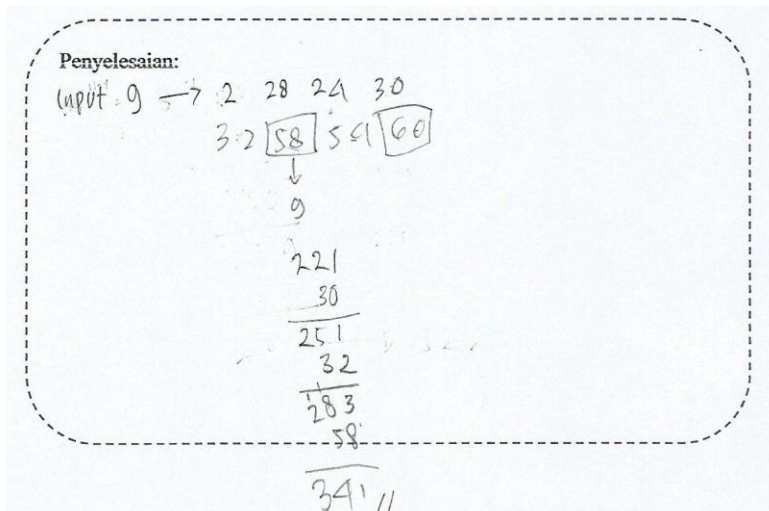 Penyelesaian:
Input 9 → 2 28 24 30
32 58 54 60
↓
9
221
30
251
32
283
58
341 //